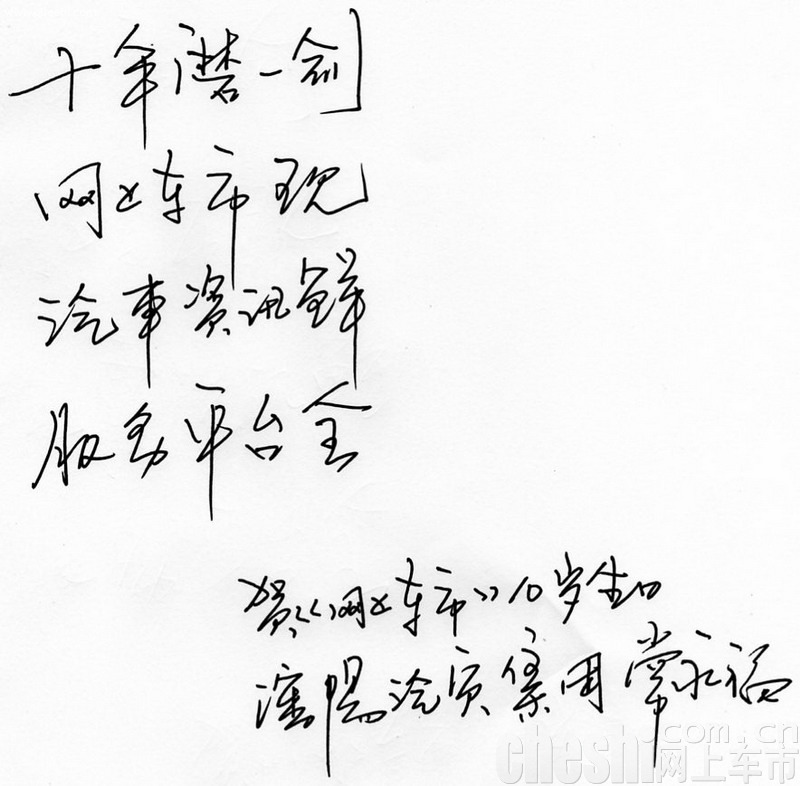 十年磨一剑
网上车市现
汽车资讯鲜
服务平台全
贺《网上车市》10岁生日
汽贸集团常永福
com.cn
cheshi网上车市